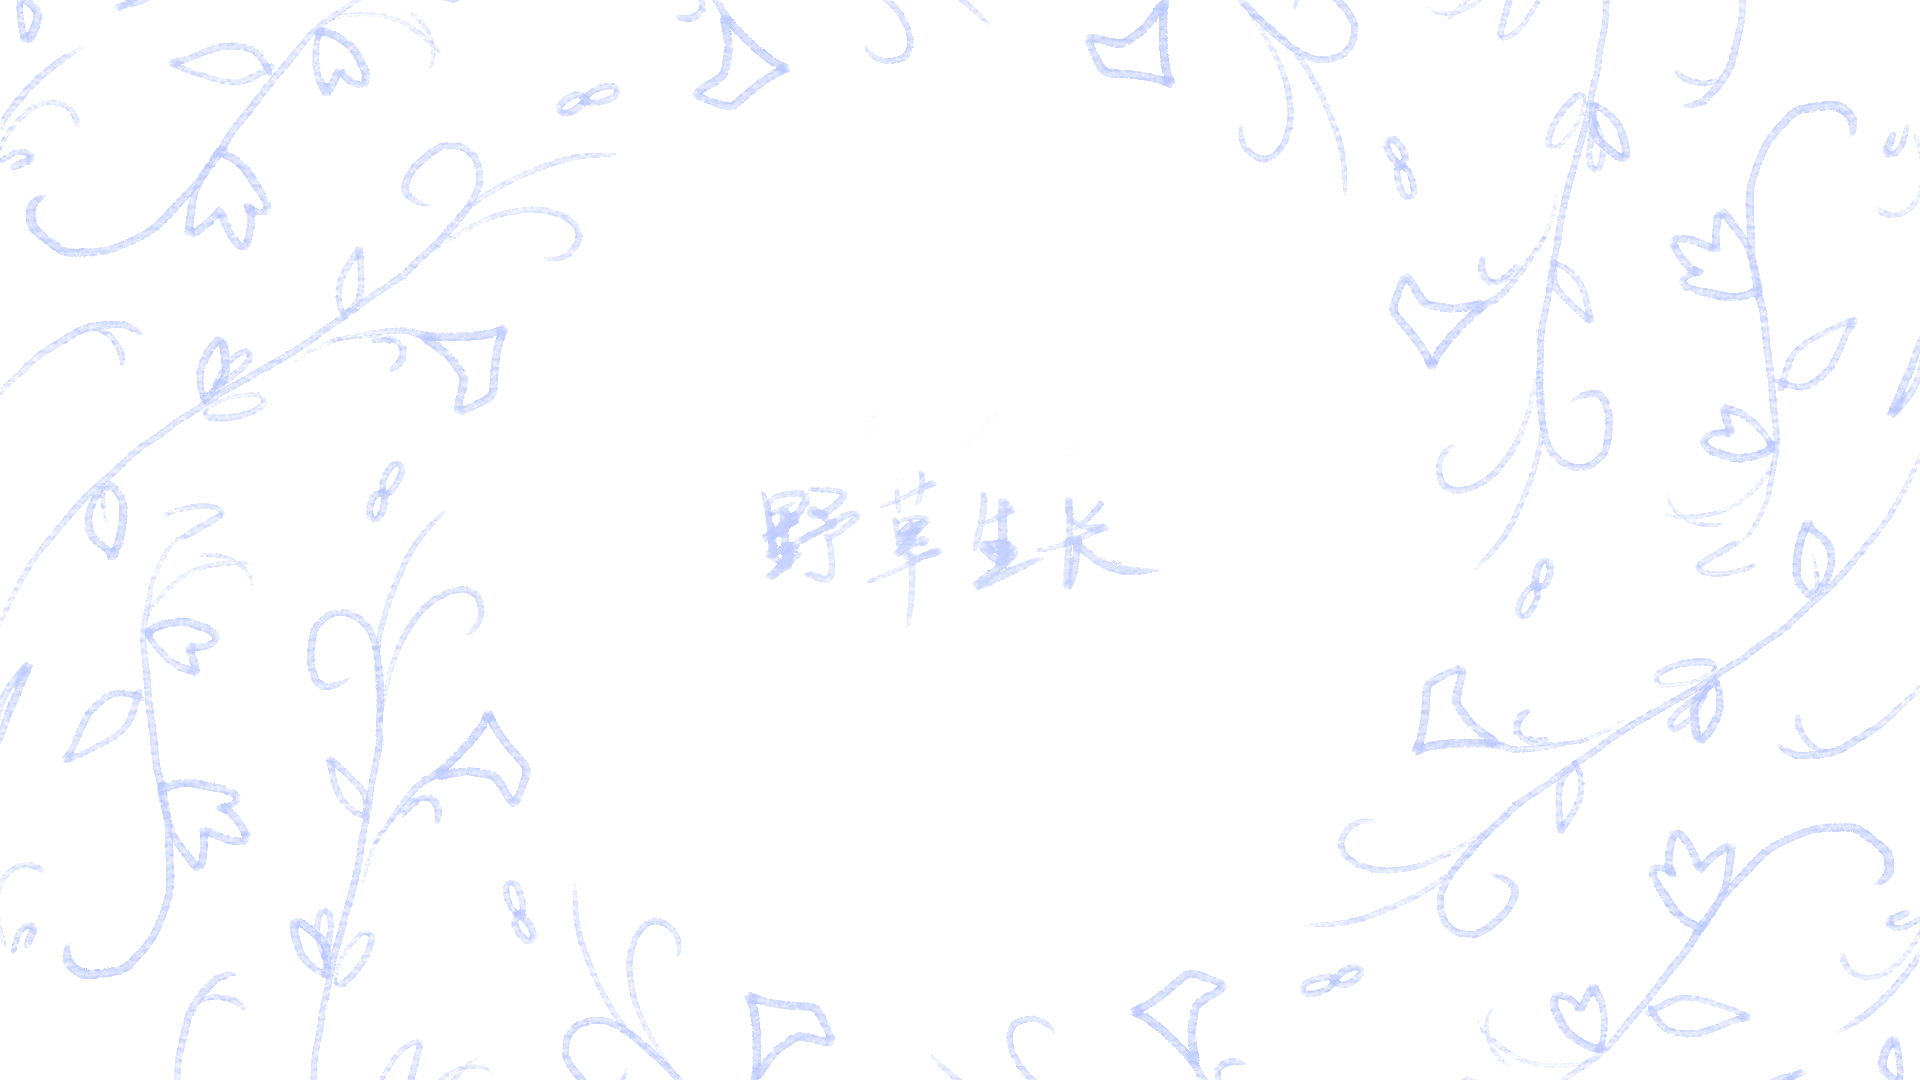 野草生长